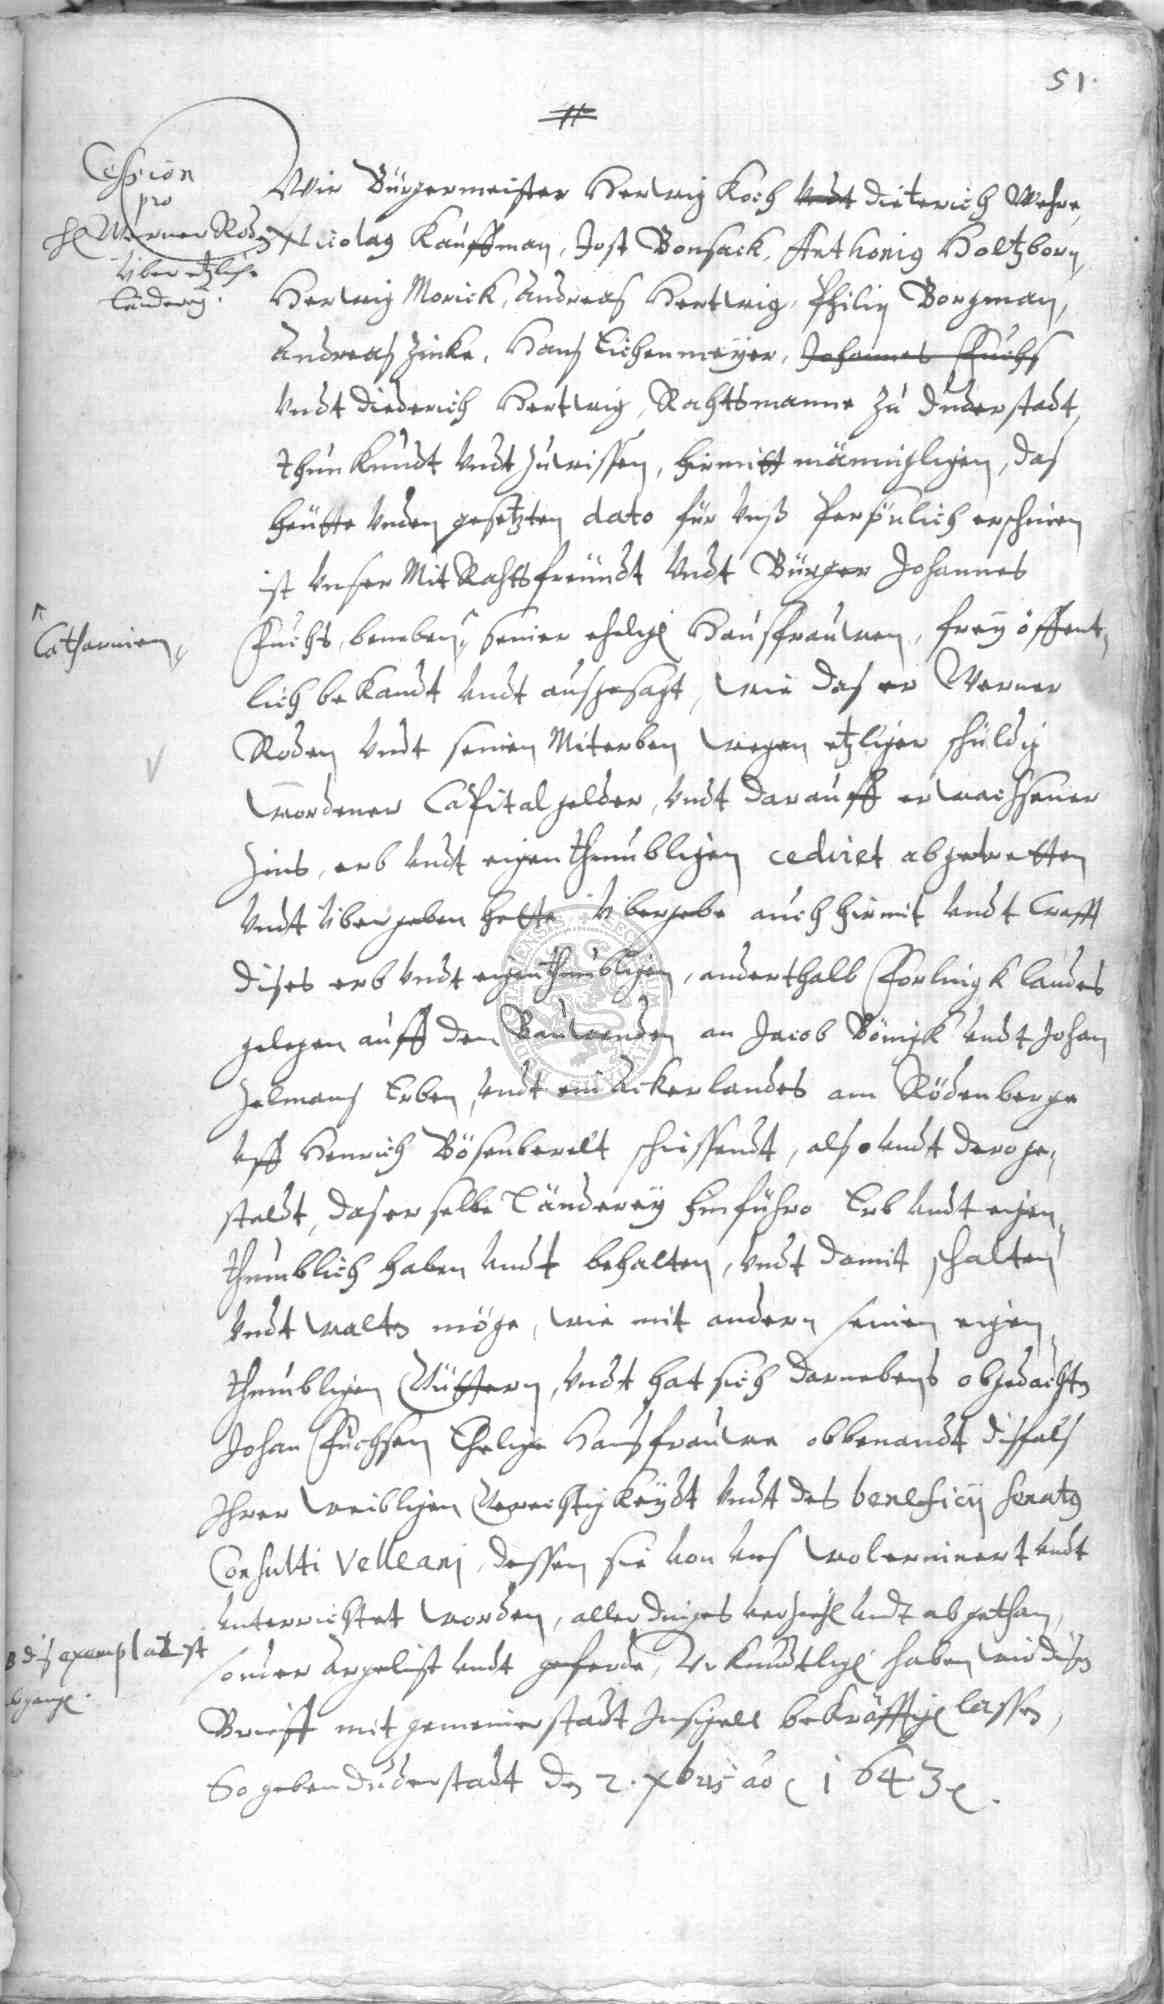 51.
Cession
pro
H Werner Roden
über etzliche
Länderey.
Wir Bürgermeister Herwig Koch undt Dieterich Wehre,
Nicolaus Kauffman, Jost Bonsack, Anthonius Holtzborn,
Herwig Morick, Andreas Hertwig, Philip Borgman,
Andreas Zinke, Hans Eichenmeyer, Johannes Fuchs
undt Diederich Hertwig, Rahtsmanne zu Duderstadt,
thun kundt undt zuwissen, hirmitt männigligen, das
heütte unden gesetzten dato für unß persönlich erschinen
ist unser Mit Rahtsfreündt undt Bürger Johannes
Fuchs, beneben seiner ehelig Hausfrauwen, frey öffent,,
Catharinen,,
lich bekandt undt ausgesagt, wie das er Werner
Roden undt seinen Miterben wegen etzliger schuldig
wordener Capitalgelder, undt darauff erwachsener
Zins, erb undt eigenthumbligen cediret abgetretten
undt übergeben hette übergebe auch hirmit undt Crafft
dises erb undt eigenthumbligen, anderthalb Forlingk landes
gelegen auff den Bauwenden an Jacob Bömigk undt Johan
Helmans Erben, undt ein Ackerlandes am Rödenberge
uff Henrich Bösenberelt schissendt, also undt dero ge,,
staldt, das er selbe Länderey hinführo Erb undt eigen,,
thumblich haben undt behalten, undt damit schalten
undt walten möge, wie mit andern seinen eigen,,
thumbligen Güttern, undt hat sich darnebens obgedachten
Johan Fuchsen Ehelige Hausfrauwe obbenandt disfals
Ihrer weibligen Gerechtigkeydt undt des beneficij Senatus
Consulti Velleani, dessen sie von uns wolerinnert undt
unterrichtet worden, aller dinges verzieh undt abgethan,
sonder Argelist undt geferde, Urkundtlig haben wir disen
dis exemplar ist
Brieff mit gemeiner stadt Insigell bekräfftig lassen,
So geben Duderstadt den 2. xbris ao 1643.